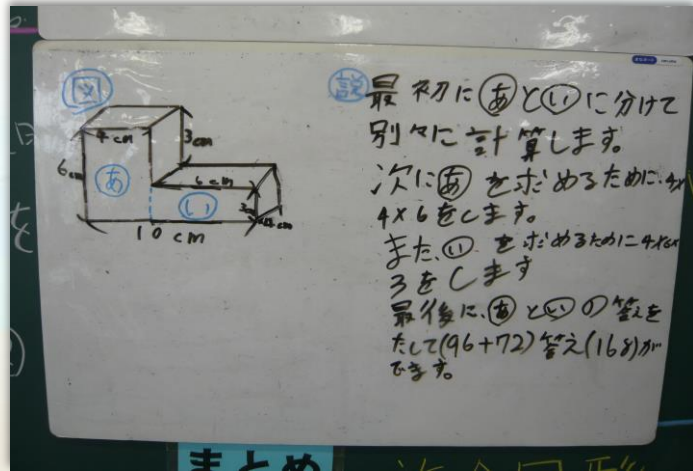 図
4cm
3cm
6cm
あ
6cm
い
3cm
4cm
10cm
説
最初にあといに分けて
別々に計算します。
次にあを求めるために、4×
4×6をします。
また、いを求めるために4×6×
3をします
最後に、あといの答えを
たして(96+72)答え(168)が
でます。
まとめ